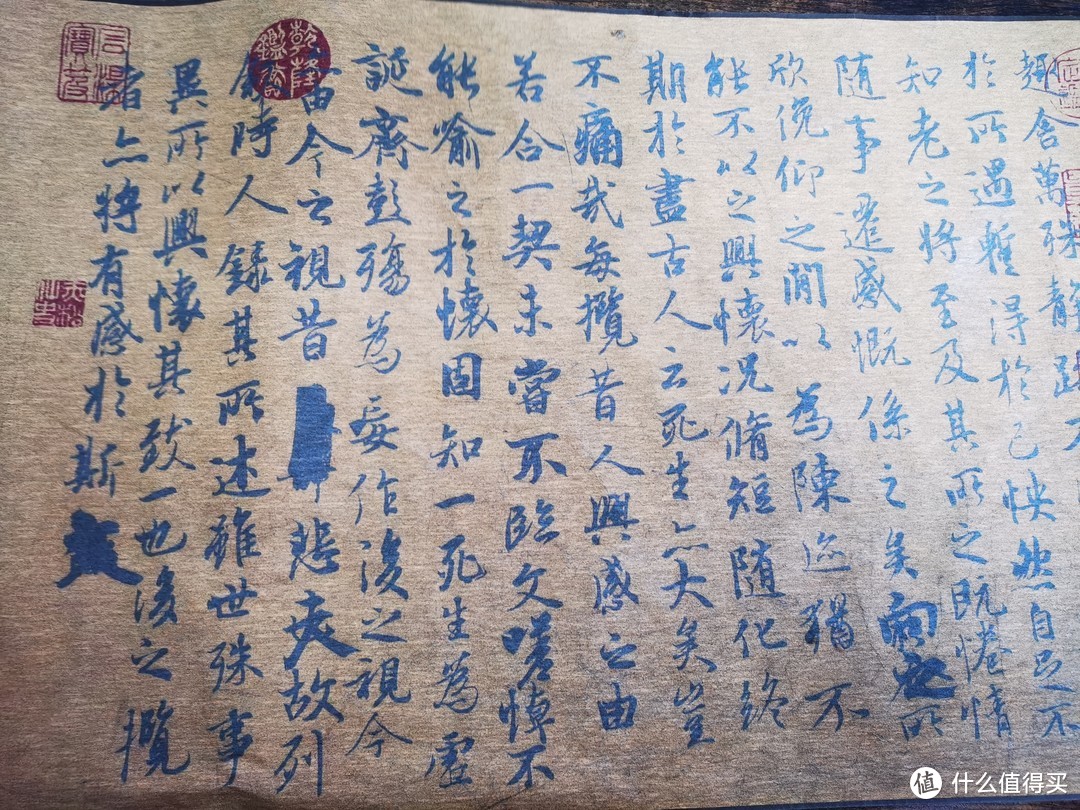 趣舍萬殊静躁不
於所遇蹔得於己怏然自足不
知老之将至及其所之既惓情
随事遷感慨係之矣向之所
欣俛仰之閒以為陳迹猶不
能不以之興懷況脩短随化終
期於盡古人云死生亦大矣豈
不痛哉每攬昔人興感之由
若合一契未嘗不臨文嗟悼不
能喻之於懷固知一死生為虚
誕齊彭殤為妄作後之視今
由今之視昔悲夫故列
叙時人録其所述雖世殊事
異所以興懷其致一也後之攬
者亦将有感於斯文
乾隆鑑賞
值 什么值得买